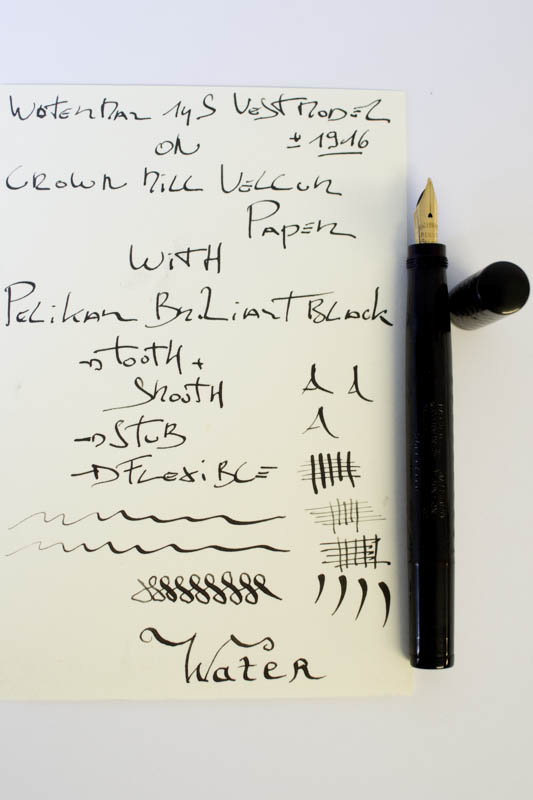 Waterman 14S Vest Model
± 1916
on
Crown Mill Vellum
Paper
With
Pelikan Brilliant Black
→ tooth +
smooth
A A
→ Stub
A
→ Flexible
Water